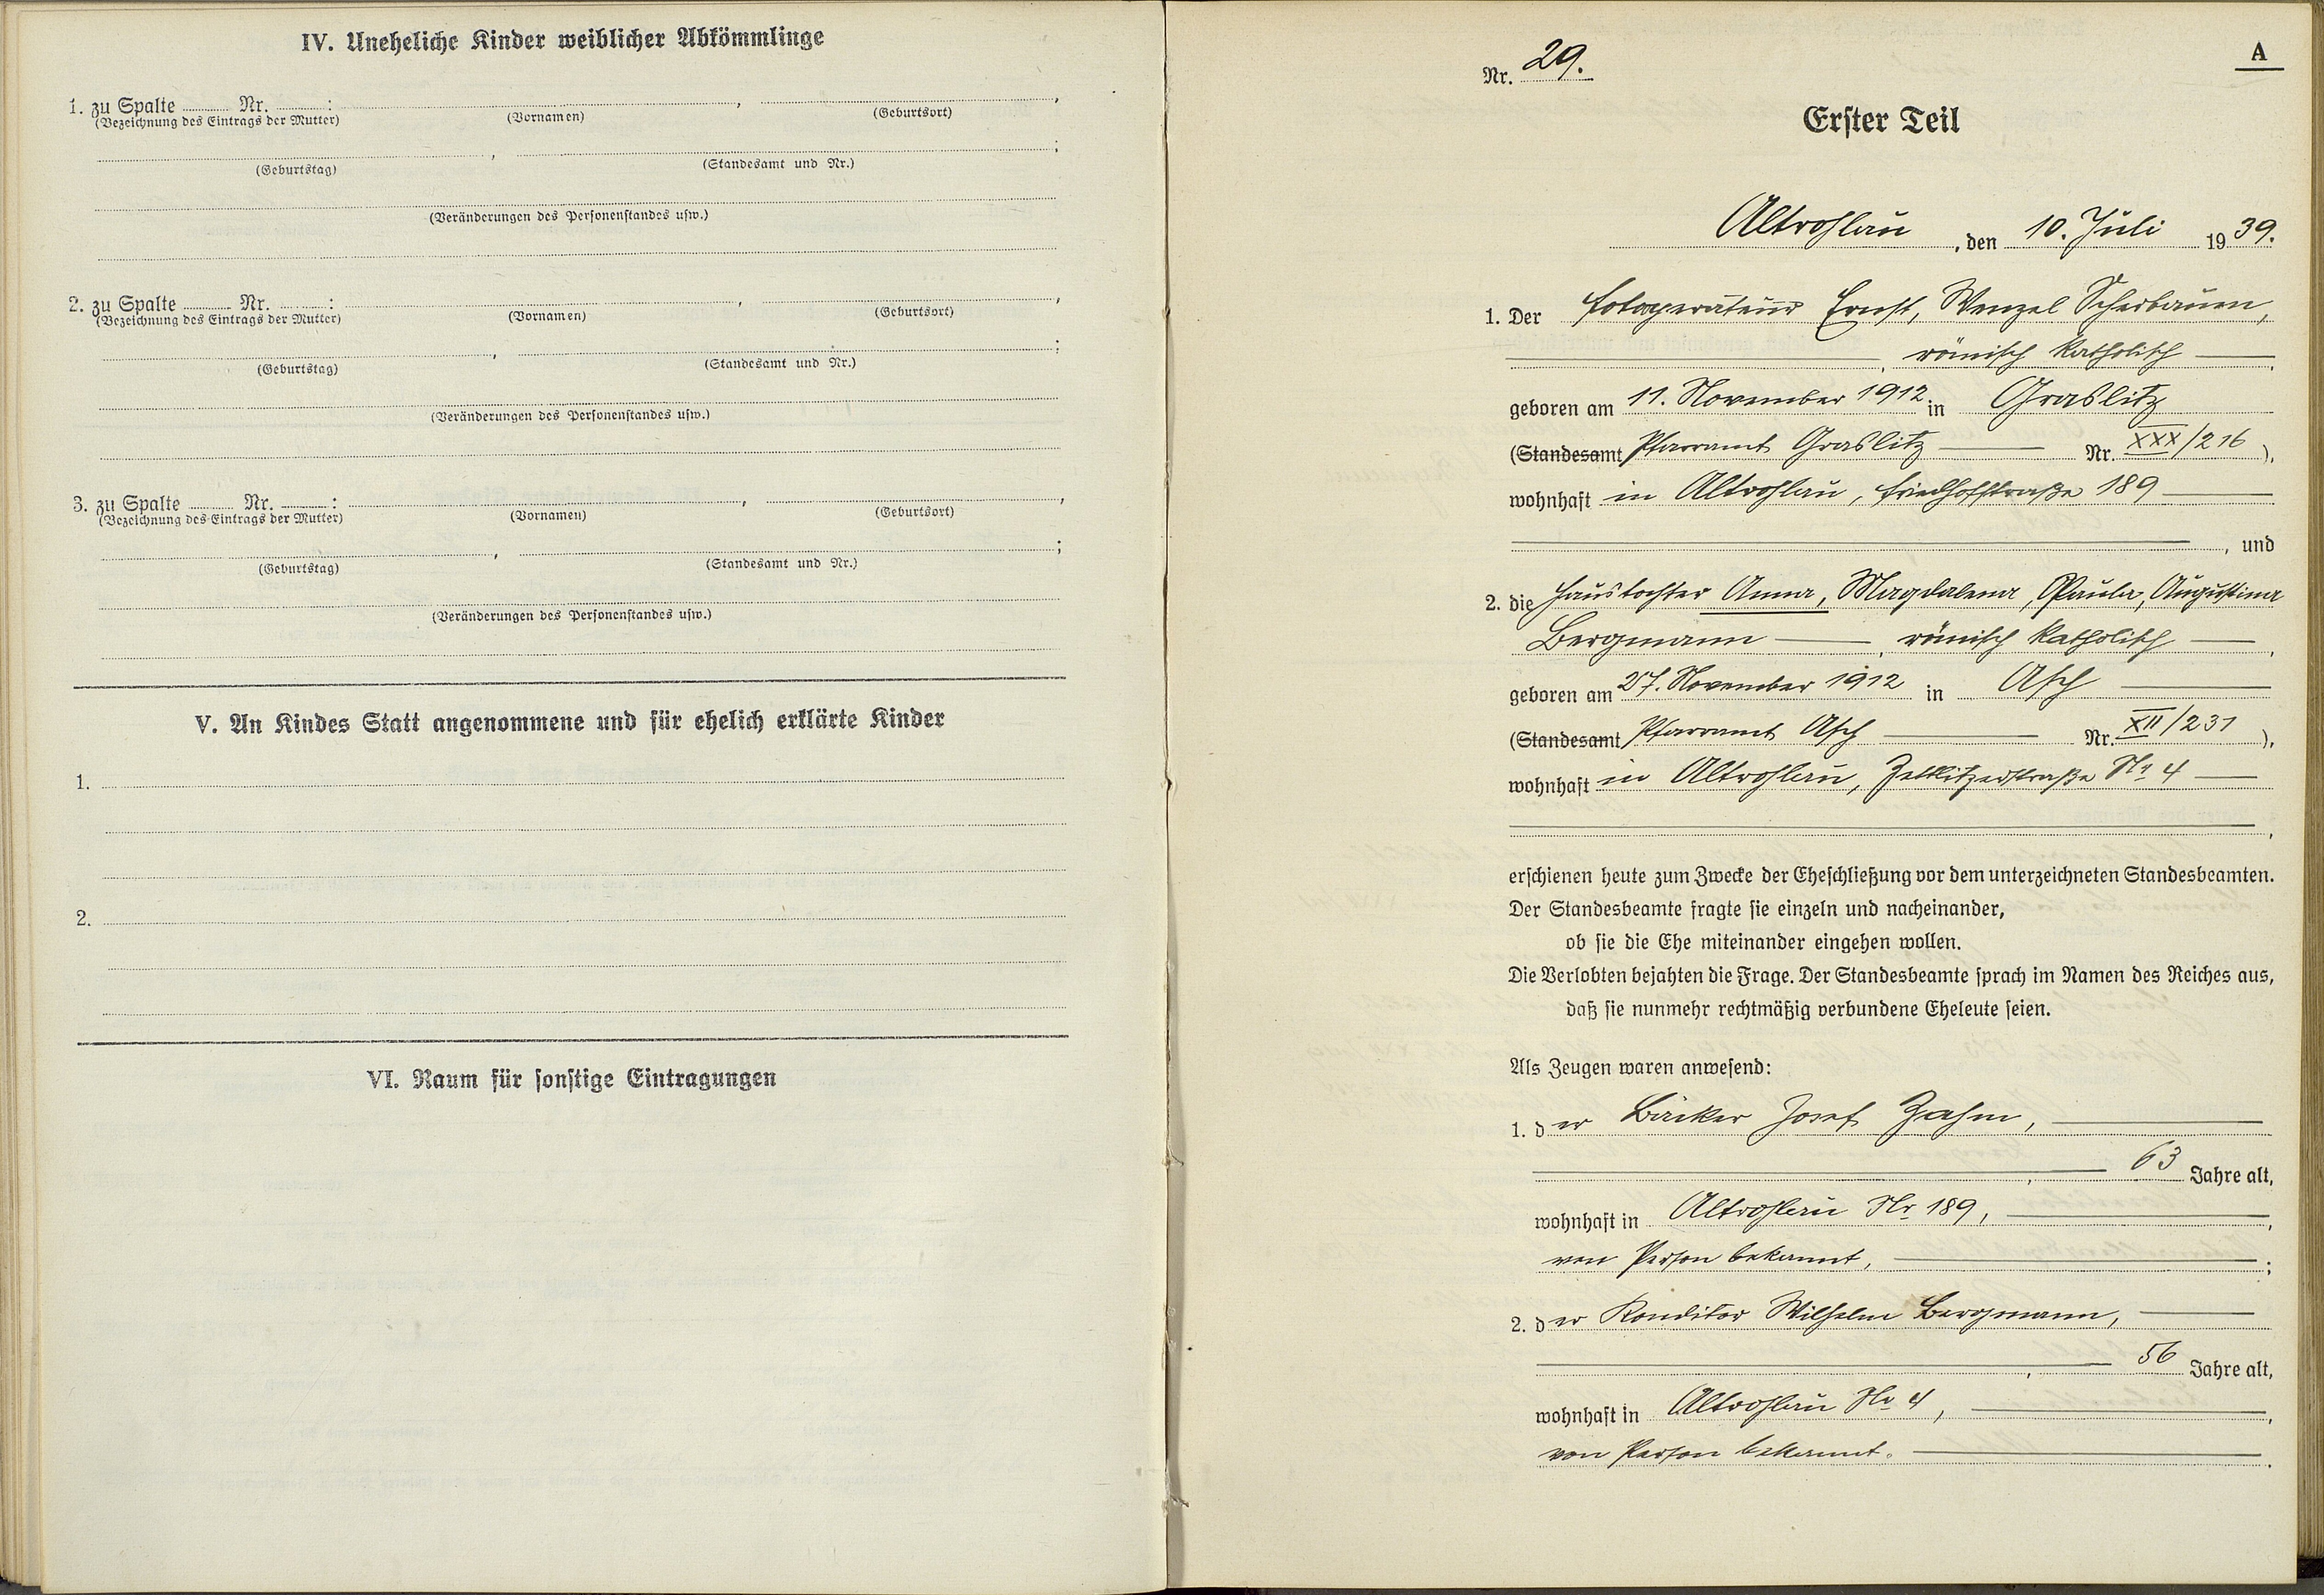 IV. Uneheliche Kinder weiblicher Abkömmlinge
1. zu Spalte ........ Nr. ........ :
(Bezeichnung des Eintrags der Mutter) (Vornamen) (Geburtsort)
(Geburtstag) (Standesamt und Nr.)
(Veränderungen des Personenstandes usw.)
2. zu Spalte ........ Nr. ........ :
(Bezeichnung des Eintrags der Mutter) (Vornamen) (Geburtsort)
(Geburtstag) (Standesamt und Nr.)
(Veränderungen des Personenstandes usw.)
3. zu Spalte ........ Nr. ........ :
(Bezeichnung des Eintrags der Mutter) (Vornamen) (Geburtsort)
(Geburtstag) (Standesamt und Nr.)
(Veränderungen des Personenstandes usw.)
V. An Kindes Statt angenommene und für ehelich erklärte Kinder
1.
2.
VI. Raum für sonstige Eintragungen
A
Nr. 29.
Erster Teil
Altrohlau, den 10. Juli 1939.
1. Der Ernst, Wenzel Scherbaum,
, römisch katholisch
geboren am 11. November 1912 in Graslitz
(Standesamt Pfarramt Graslitz Nr. XXX/216),
wohnhaft in Altrohlau, Friedhofstraße 189
, und
2. die Haustochter Anna, Magdalena, Paula, Augustina
Bergmann, römisch katholisch,
geboren am 27. November 1912 in Asch
(Standesamt Pfarramt Asch Nr. XII/231),
wohnhaft in Altrohlau, Zettlitzerstraße Nr 4
,
erschienen heute zum Zwecke der Eheschließung vor dem unterzeichneten Standesbeamten.
Der Standesbeamte fragte sie einzeln und nacheinander,
ob sie die Ehe miteinander eingehen wollen.
Die Verlobten bejahten die Frage. Der Standesbeamte sprach im Namen des Reiches aus,
daß sie nunmehr rechtmäßig verbundene Eheleute seien.
Als Zeugen waren anwesend:
1. der Bäcker Josef Zahm,
, 63 Jahre alt,
wohnhaft in Altrohlau Nr 189,
von Person bekannt, ;
2. der Konditor Wilhelm Bergmann,
, 56 Jahre alt,
wohnhaft in Altrohlau Nr 4,
von Person bekannt.